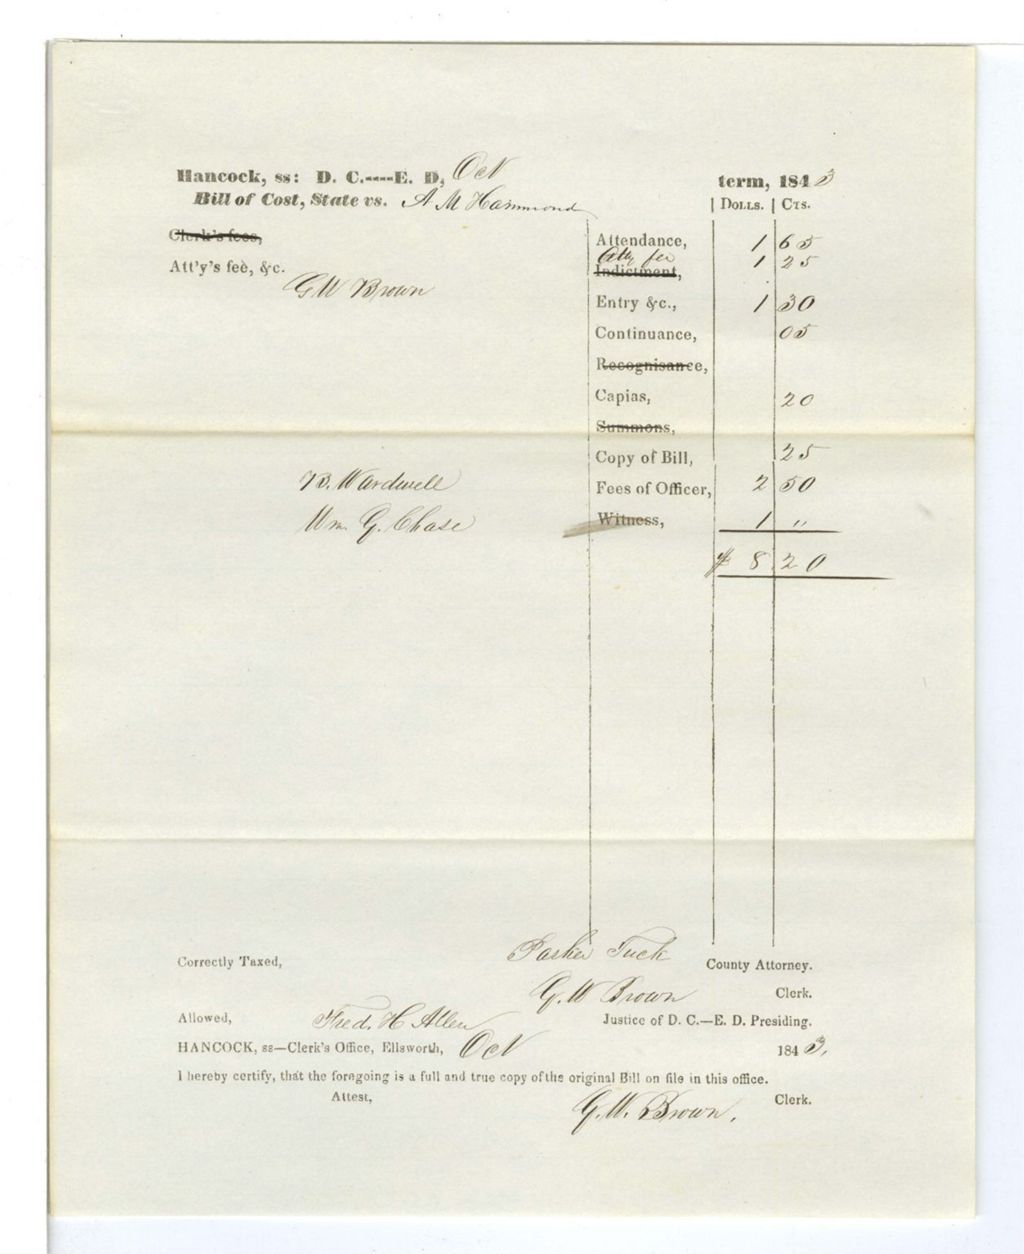 Hancock, ss: D. C.----E. D, Oct term, 1843
Bill of Cost, State vs. A M Hammond | Dolls. | Cts.
Clerk's fees, Attendance, 1 65
Atty fee 1 25
Att'y's fee, &c. Indictment,
G W Brown Entry &c., 1 30
Continuance, 05
Recognisance,
Capias, 20
Summons,
Copy of Bill, 25
B. Wardwell Fees of Officer, 2 50
Wm. G. Chase Witness, 1 "
$ 8 20
Correctly Taxed, Parker Tuck County Attorney.
G. W Brown Clerk.
Allowed, Fred. H Allen Justice of D. C.—E. D. Presiding.
HANCOCK, ss—Clerk's Office, Ellsworth, Oct 1843.
I hereby certify, that the foregoing is a full and true copy of the original Bill on file in this office.
Attest, G. W. Brown, Clerk.